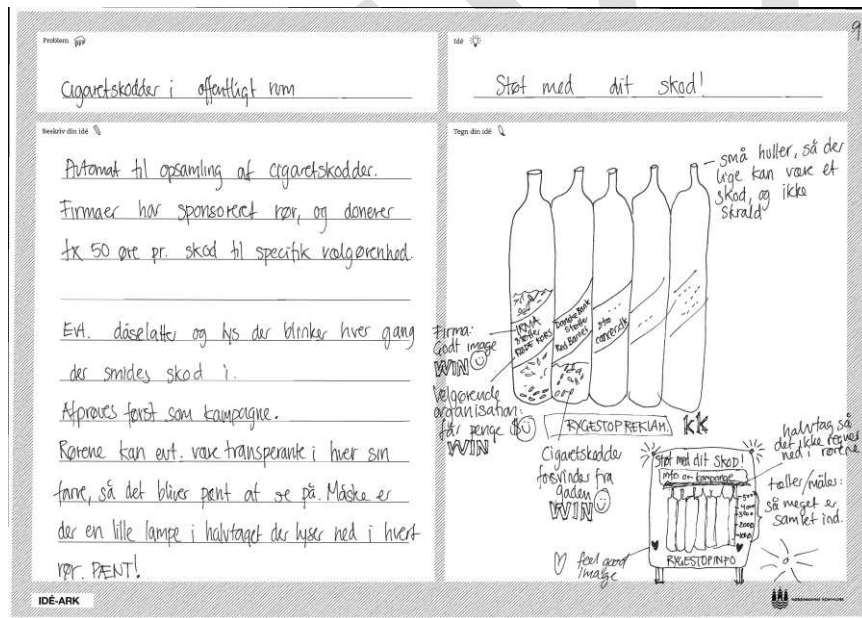 9
Problem
Cigaretskodder i offentligt rum
Idé
Støt med dit skod!
Beskriv din idé
Automat til opsamling af cigaretskodder.
Firmaer har sponsoreret rør, og donerer
fx 50 øre pr. skod til specifik velgørenhed.
Evt. dåselatter og lys der blinker hver gang
der smides skod i.
Afprøves først som kampagne.
Rørene kan evt. være transperante i hver sin
farve, så det bliver pænt at se på. Måske er
der en lille lampe i halvtaget der lyser ned i hvert
rør. PÆNT!
Tegn din idé
små huller, så der
lige kan være et
skod, og ikke
skrald
IRMA
støtter
RØDE KORS
Danske Bank
støtter
Red Barnet
Firma:
Godt image
WIN
Velgørende
organisation:
får penge $
WIN
RYGESTOPREKLAM.
KK
Cigaretskodder
forsvinder fra
gaden
WIN
halvtag, så
det ikke regner
ned i rørene
Støt med dit skod!
info om kampagne
5000
4000
3000
2000
1000
tæller/måler:
så meget er
samlet ind.
RYGESTOPINFO
feel good
image
IDÉ-ARK
KØBENHAVNS KOMMUNE